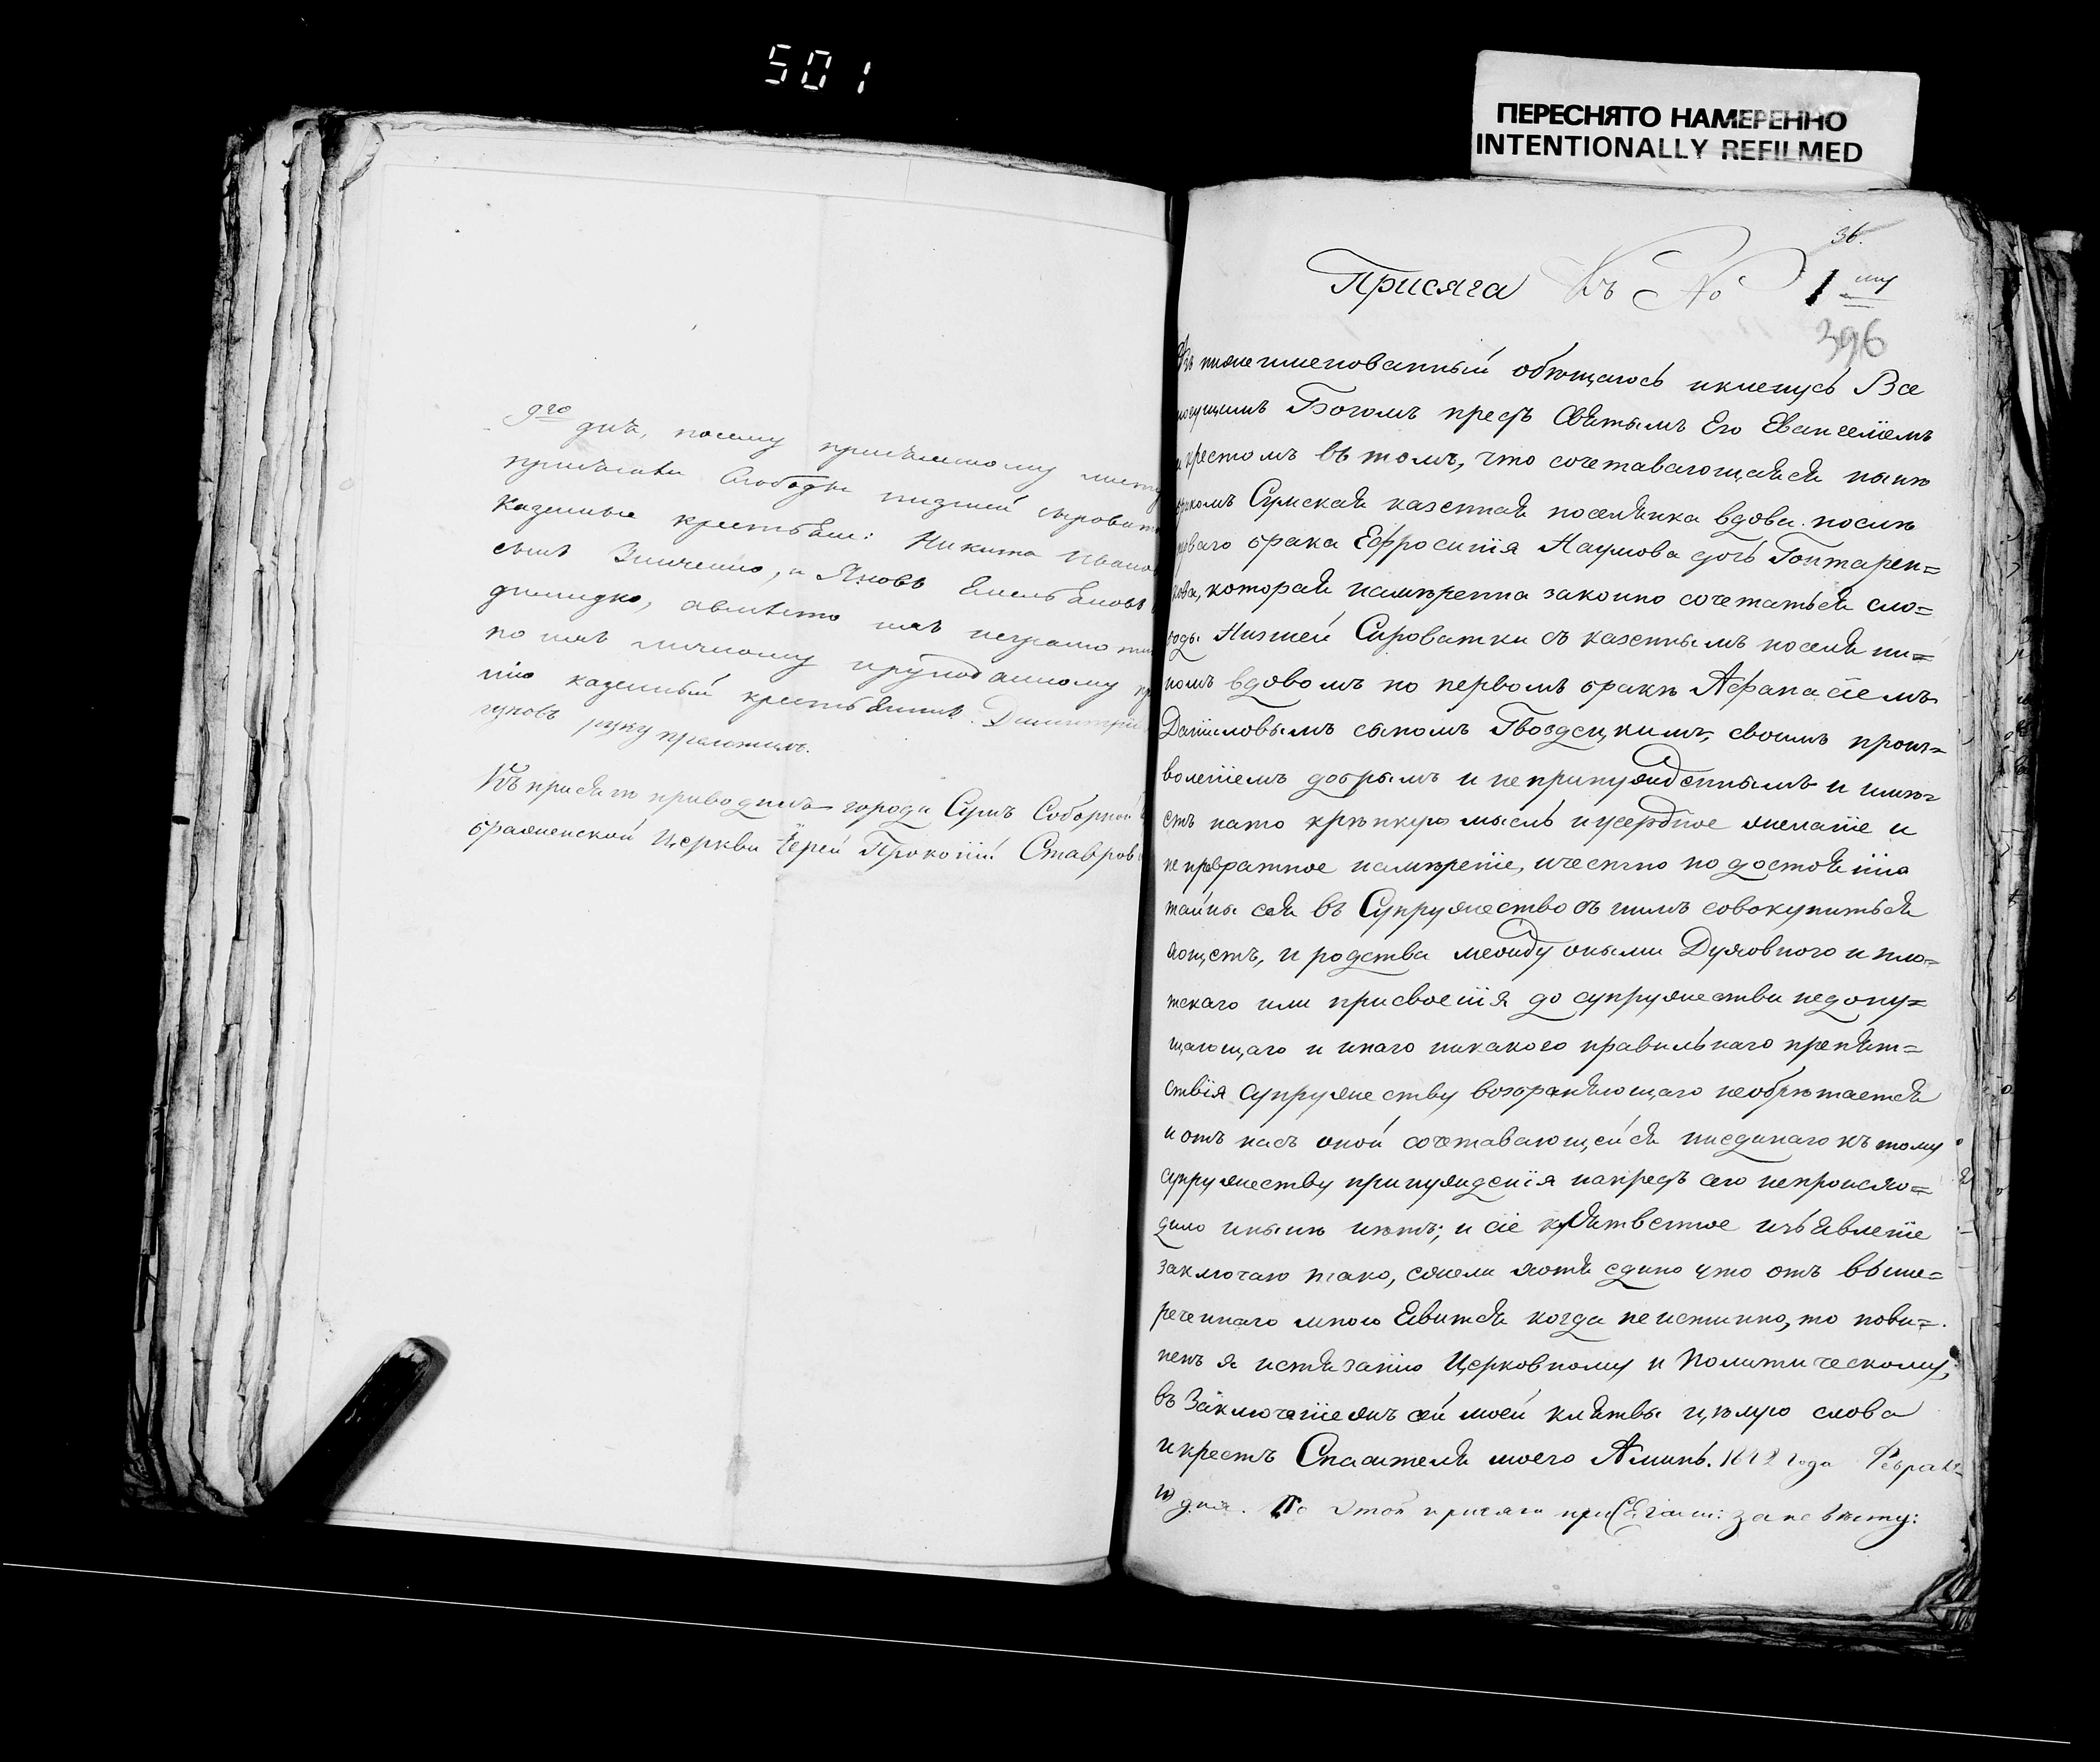 501
ПЕРЕСНЯТО НАМЕРЕННО
INTENTIONALLY REFILMED
9го дня, посему присяжному листу
присягали Слободы низшей сыроват
казенные крестьяне: Никита Иванов
сынъ Зинченко, и Яковъ Емельяновъ
по ихъ личному
нію казенный крестьянинъ Димитрій
руку приложилъ.
Къ присягѣ приводилъ города Сумъ Соборной
ображенской Церкви Іерей Прокопій Ставров
36.
Присяга Къ № 1му
396
нижеименованный обѣщаюсь и кленусь Все
могущимъ Богомъ предъ Святымъ Его Евангеліемъ
и крестомъ въ томъ, что сочетавающаяся нынѣ
бракомъ Сумская казенная поселянка вдова послѣ
перваго брака Ефросинія Наумова дочь Гонтарен=
кова, которая намѣренна законно сочетаться сло=
боды Низшей Сыроватки съ казеннымъ поселяни=
номъ вдовомъ по первомъ бракѣ Афанасіемъ
Даниловымъ сыномъ Гвоздецкимъ, своимъ произ=
воленіемъ добрымъ и непринужденнымъ и имѣ=
етъ на то крѣпкую мысль и усердное желаніе и
не превратное намѣреніе, и честно по достоянію
тайны сея въ Супружество съ нимъ совокупиться
хощетъ, и родства между оными Духовного и пло=
тскаго или присвоенія до супружества недопу=
щающаго и инаго никакого правильнаго препят=
ствія супружеству возбраняющаго необрѣтается
и отъ насъ оной сочетавающейся ниединаго къ тому
супружеству принужденія напредъ сего непроисхо=
дило и нынѣ нѣтъ; и сіе клятвенное изъявленіе
заключаю тако, ежели хотя едино что отъ выше=
реченнаго мною явится когда неистинно, то пови=
ненъ я истязанію Церковному и Политическому,
въ Заключеніе жъ сей моей клятвы цѣлую слова
и крестъ Спасителя моего Аминь. 1842 года Февраля
дня. По этой присяги